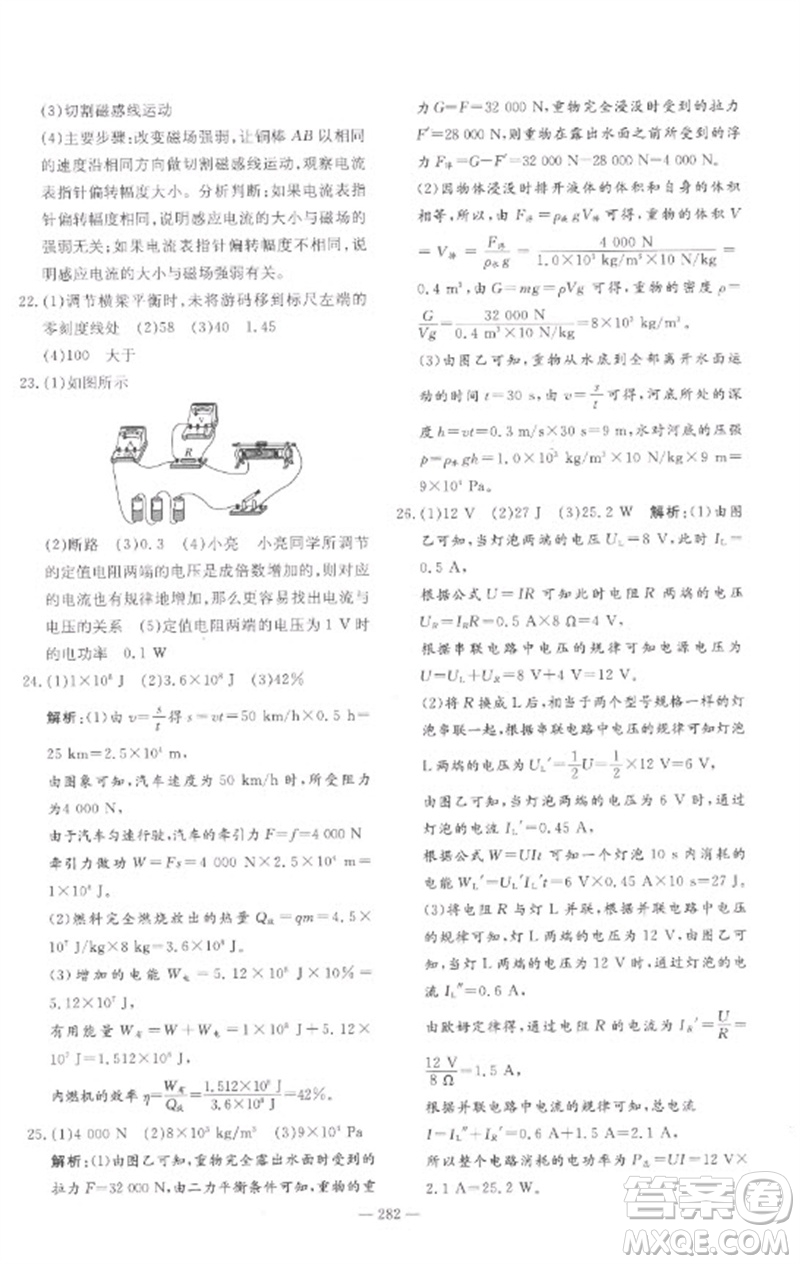 (3)切割磁感线运动
(4)主要步骤:改变磁场强弱,让铜棒 AB 以相同
的速度沿相同方向做切割磁感线运动,观察电流
表指针偏转幅度大小。分析判断:如果电流表指
针偏转幅度相同,说明感应电流的大小与磁场的
强弱无关;如果电流表指针偏转幅度不同,说
明感应电流的大小与磁场强弱有关。
22. (1)调节横梁平衡时,未将游码移到标尺左端的
零刻度线处 (2)58 (3)40 1.45
(4)100 大于
23. (1)如图所示
V
A
R
(2)断路 (3)0.3 (4)小亮 小亮同学所调节
的定值电阻两端的电压是成倍数增加的,则对应
的电流也有规律地增加,那么更容易找出电流与
电压的关系 (5)定值电阻两端的电压为 1 V 时
的电功率 0.1 W
24. (1)1×10⁸ J (2)3.6×10⁸ J (3)42%
解析:(1)由 v=s/t 得 s=vt=50 km/h×0.5 h=
25 km=2.5×10⁴ m,
由图象可知,汽车速度为 50 km/h 时,所受阻力
为4 000 N,
由于汽车匀速行驶,汽车的牵引力 F=f=4 000 N
牵引力做功 W=Fs=4 000 N×2.5×10⁴ m=
1×10⁸ J;
(2)燃料完全燃烧放出的热量 Q放=mq=4.5×
10⁷ J/kg×8 kg=3.6×10⁸ J;
(3)增加的电能 W电=5.12×10⁸ J×10%=
5.12×10⁷ J,
有用能量 W有=W+W电=1×10⁸ J+5.12×
10⁷ J=1.512×10⁸ J,
内燃机的效率 η=W有/Q放=1.512×10⁸ J/3.6×10⁸ J=42%。
25. (1)4 000 N (2)8×10³ kg/m³ (3)9×10⁴ Pa
解析:(1)由图乙可知,重物完全露出水面时的
拉力 F=32 000 N,由二力平衡条件可知,重物的重
力 G=F=32 000 N,重物完全浸没时的拉力
F′=28 000 N,则重物在露出水面之前的浮
力 F浮=G−F′=32 000 N−28 000 N=4 000 N;
(2)因物体浸没时排开液体的体积和自身的体积
相等,所以,由 F浮=ρ水gV排 可得,重物的体积 V
=V排=F浮/ρ水g=4 000 N/1.0×10³ kg/m³×10 N/kg=
0.4 m³,由 G=mg=ρVg 可得,重物的密度 ρ=
G/Vg=32 000 N/0.4 m³×10 N/kg=8×10³ kg/m³;
(3)由图乙可知,重物从水底到全部离开水面运
动的时间 t=30 s,由 v=s/t 可得,河底所处的深
度 h=vt=0.3 m/s×30 s=9 m,水对河底的压强
p=ρ水gh=1.0×10³ kg/m³×10 N/kg×9 m=
9×10⁴ Pa。
26. (1)12 V (2)27 J (3)25.2 W 解析:(1)由图
乙可知,当灯泡两端电压 UL=8 V 时,IL=
0.5 A,
根据公式 U=IR 可知此时电阻 R 两端的电压
UR=ILR=0.5 A×8Ω=4 V,
根据串联电路中电压的规律可知电源电压
U=UL+UR=8 V+4 V=12 V;
(2)将 R 换成 L后,相当于两个型号规格一样的灯
泡串联一起,根据串联电路中电压的规律可知灯泡
L两端的电压 UL′=1/2U=1/2×12 V=6 V,
由图乙可知,当灯泡两端电压为 6 V 时,通过
灯泡的电流 IL′=0.45 A,
根据公式 W=UIt 可知一个灯泡 10 s 内消耗的
电能 WL′=UL′IL′t=6 V×0.45 A×10 s=27 J,
(3)将电阻 R 与灯 L 并联,根据并联电路中电压
的规律可知,灯 L 两端的电压为 12 V,由图乙
可知,灯泡两端的电压为 12 V 时,通过灯泡的电
流 IL″=0.6 A,
由欧姆定律得,通过电阻 R 的电流为 IR′=U/R=
12 V/8Ω=1.5 A,
根据并联电路中电流的规律可知,总电流
I=IL″+IR′=0.6 A+1.5 A=2.1 A,
所以整个电路消耗的电功率为 P总=UI=12 V×
2.1 A=25.2 W。
— 282 —
答案圈
MXQE.COM